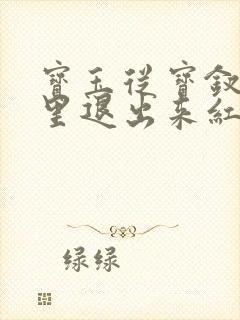 寶玉從寶釵
里退出來紅
绿绿